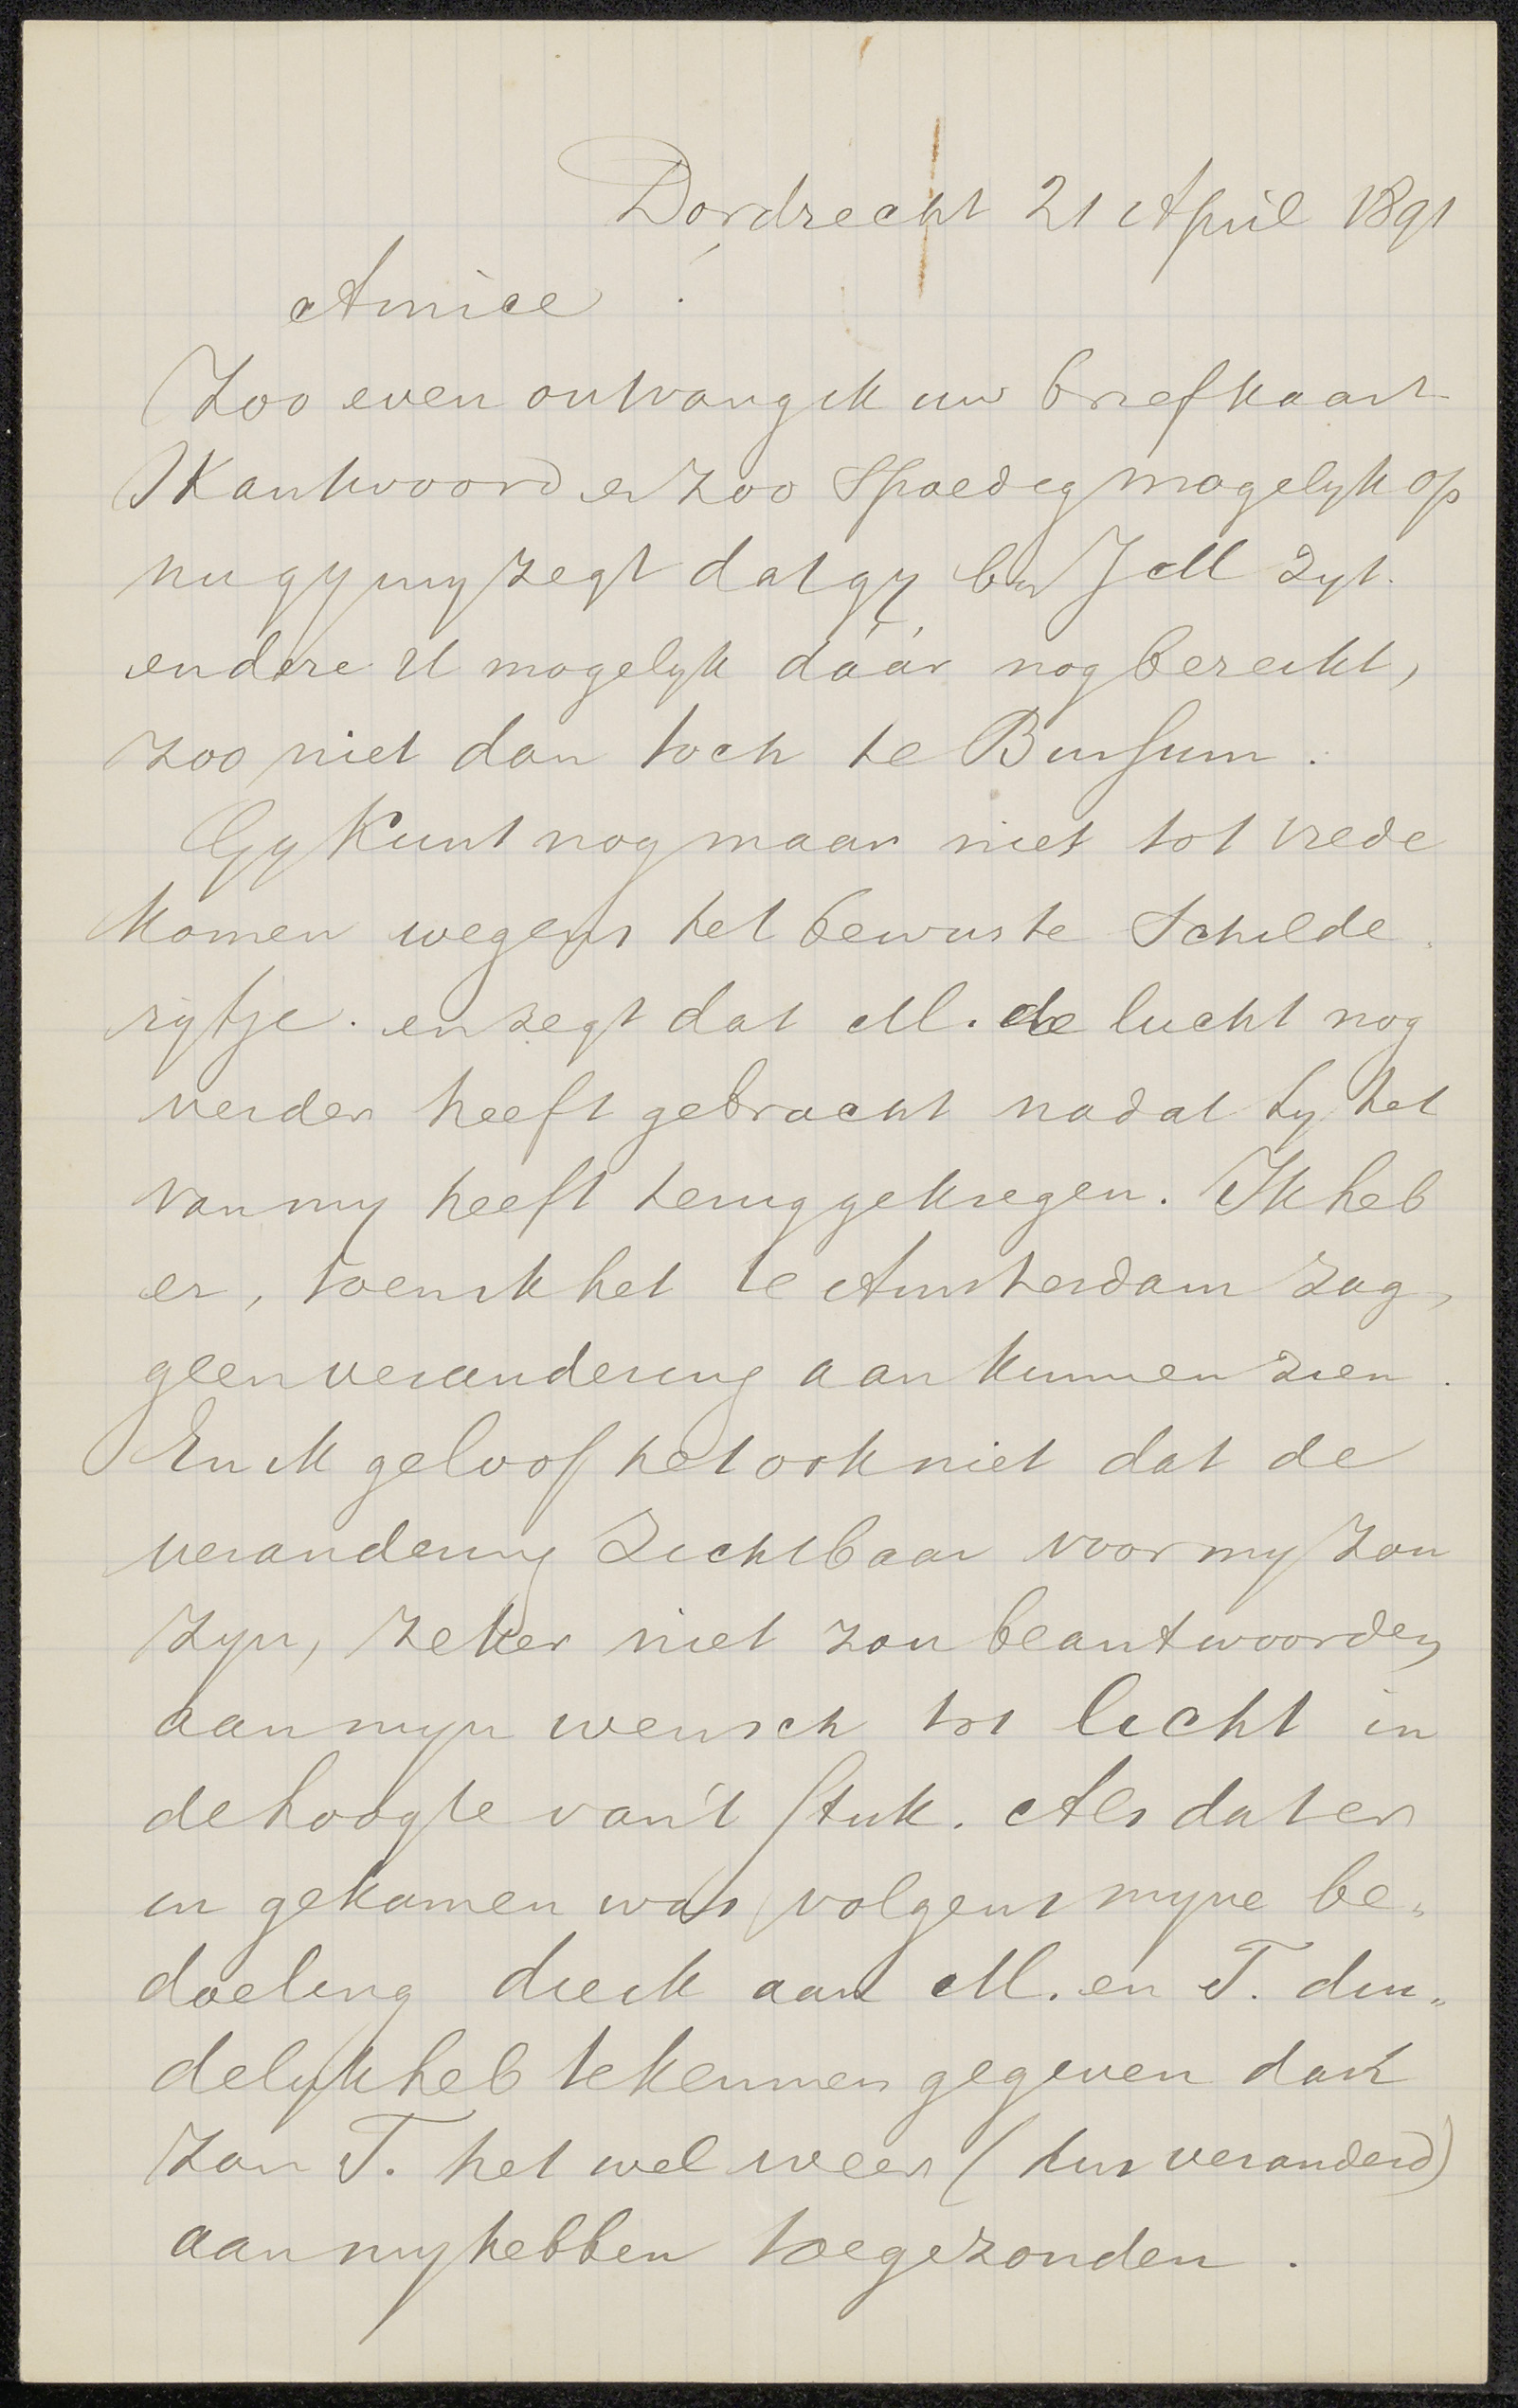 Dordrecht 21 April 1891
Amice
Zoo even ontvang ik uw briefkaart
Ik antwoord er zoo spoedig mogelyk op
nu gy my zegt dat gy by J M zyt.
en dese U mogelyk dáár nog bereikt,
zoo niet dan toch te Bussum.
Gy kunt nog maar niet tot vrede
komen wegens het bewuste Schilde
rytje. en zegt dat M. de lucht nog
verder heeft gebracht nadat hy het
van my heeft teruggekregen. Ik heb
er, toen ik het te Amsterdam zag,
geen verandering aan kunnen zien.
En ik geloof het ook niet dat de
verandering zichtbaar voor my zou
zyn, zeker niet zou beantwoorden
aan myn wensch tot licht in
de hoogte van 't stuk. Als dat er
in gekomen was volgens myne be„
doeling die ik aan M. en T. dui„
delyk heb te kennen gegeven dan
zou T. het wel weer (dus veranderd)
aan my hebben toegezonden.